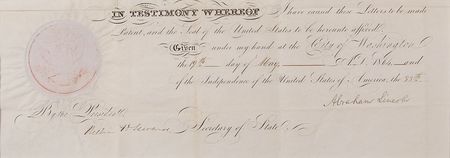 IN TESTIMONY WHEREOF I have caused these Letters to be made
Patent, and the Seal of the United States to be hereunto affixed.
Given under my hand at the City of Washington
the day of May, A.D. 1864, and
of the Independence of the United States of America, the 88th.
Abraham Lincoln
By the President:
Secretary of State.